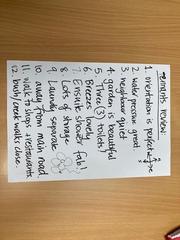 tenants review
1. orientation is perfect
2. water pressure great.
3. neighbour quiet
4. garden is beautiful
5. Three (3) toilets!
6. Breezes lovely
7. Ensuite shower fab!
8. Lots of storage
9. Laundry separate
10. away from main road
11. walk to shops & restaurants
12. bush/creek walks close.